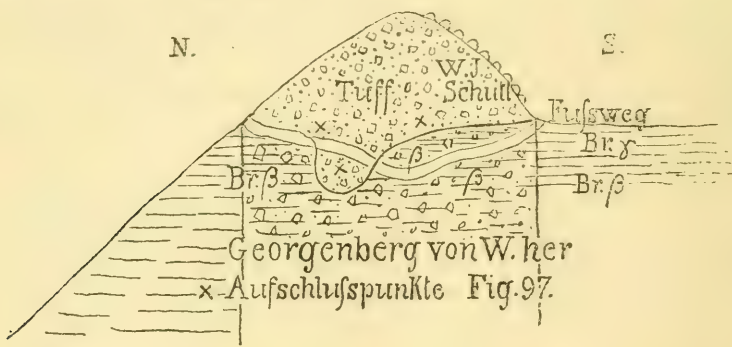 N. S.
W.J.
Tuff Schutt
Fuſsweg
Br. γ
β
Br. β β Br. β
Georgenberg von W. her
× Aufſchluſspunkte Fig. 97.